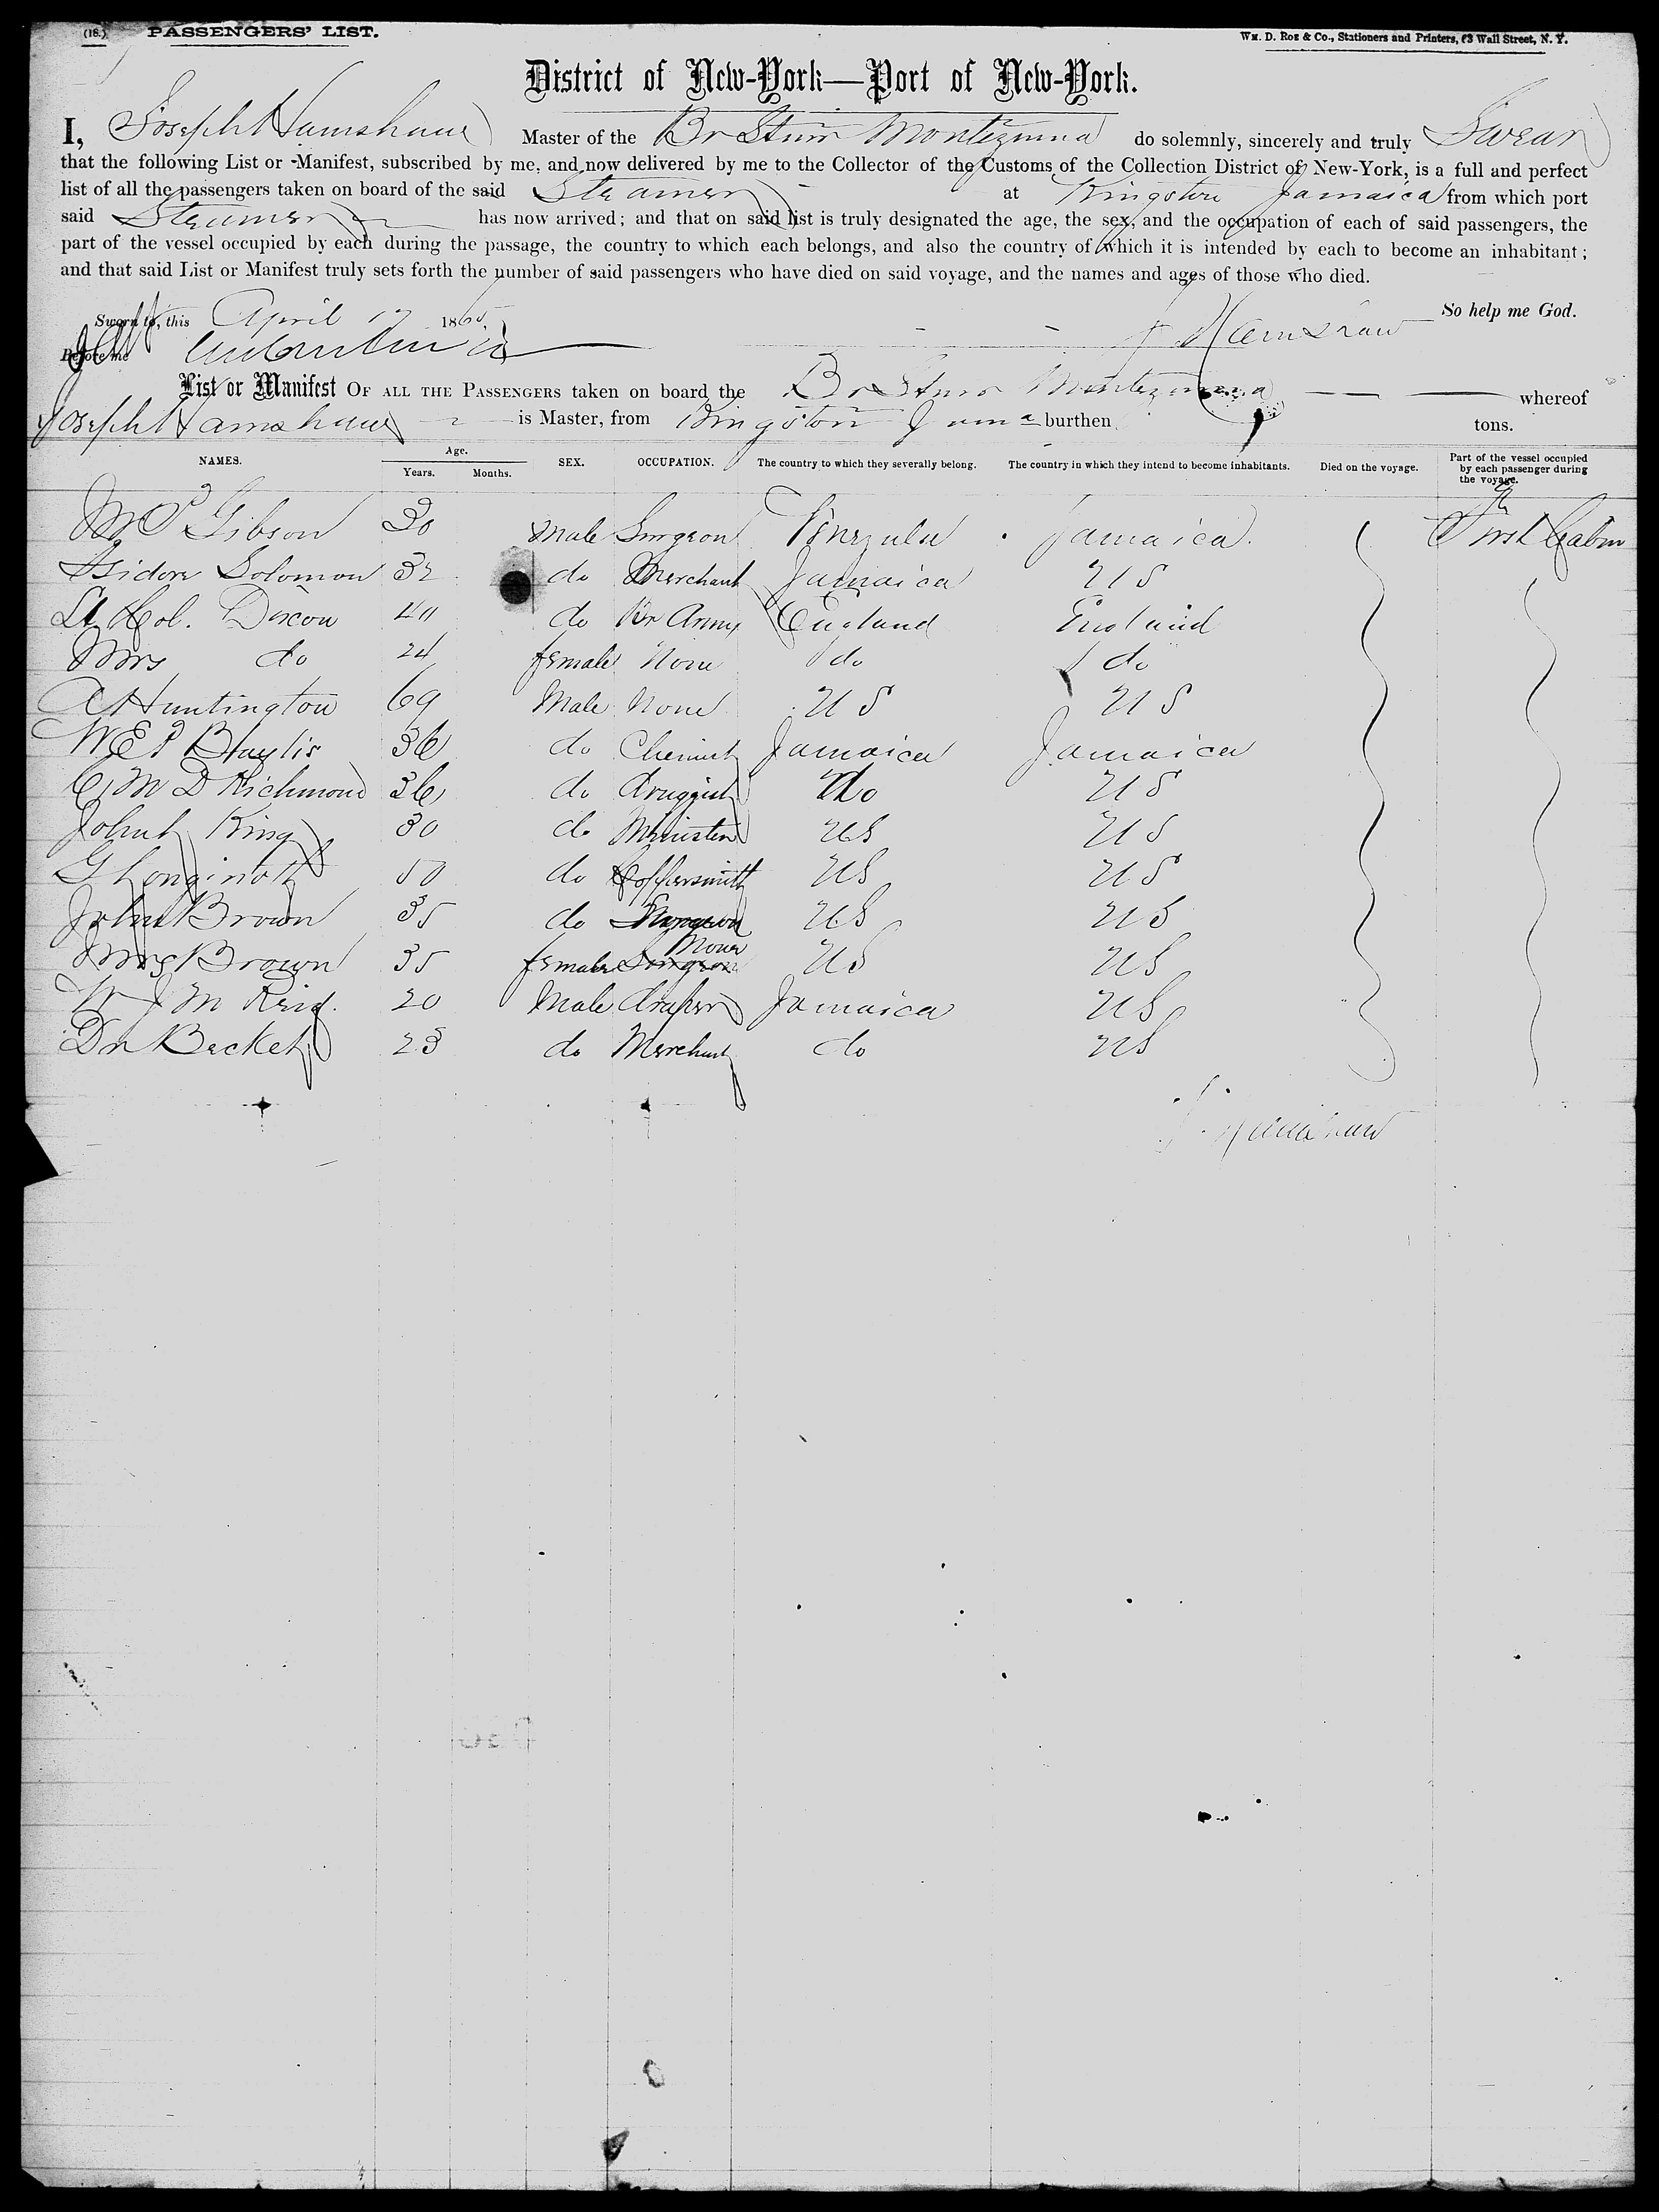 (18.) PASSENGERS' LIST.
WM. D. ROE & Co., Stationers and Printers, 63 Wall Street, N. Y.
District of New-York—Port of New-York.
I, Joseph Hamshaw Master of the Br Stmr Montezuma do solemnly, sincerely and truly Swear
that the following List or Manifest, subscribed by me, and now delivered by me to the Collector of the Customs of the Collection District of New-York, is a full and perfect
list of all the passengers taken on board of the said Steamer at Kingston Jamaica from which port
said Steamer has now arrived; and that on said list is truly designated the age, the sex, and the occupation of each of said passengers, the
part of the vessel occupied by each during the passage, the country to which each belongs, and also the country of which it is intended by each to become an inhabitant;
and that said List or Manifest truly sets forth the number of said passengers who have died on said voyage, and the names and ages of those who died.
So help me God.
Sworn to, this April 17 1865
J Hamshaw
Before me
List or Manifest OF ALL THE PASSENGERS taken on board the Br Stmr Montezuma whereof
Joseph Hamshaw is Master, from Kingston Jama burthen tons.
NAMES. Age. Years. Months. SEX. OCCUPATION. The country to which they severally belong. The country in which they intend to become inhabitants. Died on the voyage. Part of the vessel occupied by each passenger during the voyage.
Gibson 30 Male Surgeon Venzula Jamaica. First Cabin
Isidore Solomon 32 do Merchant Jamaica U S
Lt Col. Dixon 40 do Br Army England England
Mrs do 24 female None do do
A Huntington 69 Male None U S U S
W E P Baylis 36 do Chemist Jamaica Jamaica
C M D Richmond 36 do druggist do U S
John King 30 do Minister U S U S
G Longinoth 50 do Coppersmith U S U S
John Brown 35 do Surgeon U S U S
Mrs Brown 35 female Surgeon None U S U S
W J M Reid. 20 Male draper Jamaica U S
Dn Becket 23 do Merchant do U S
J Hamshaw